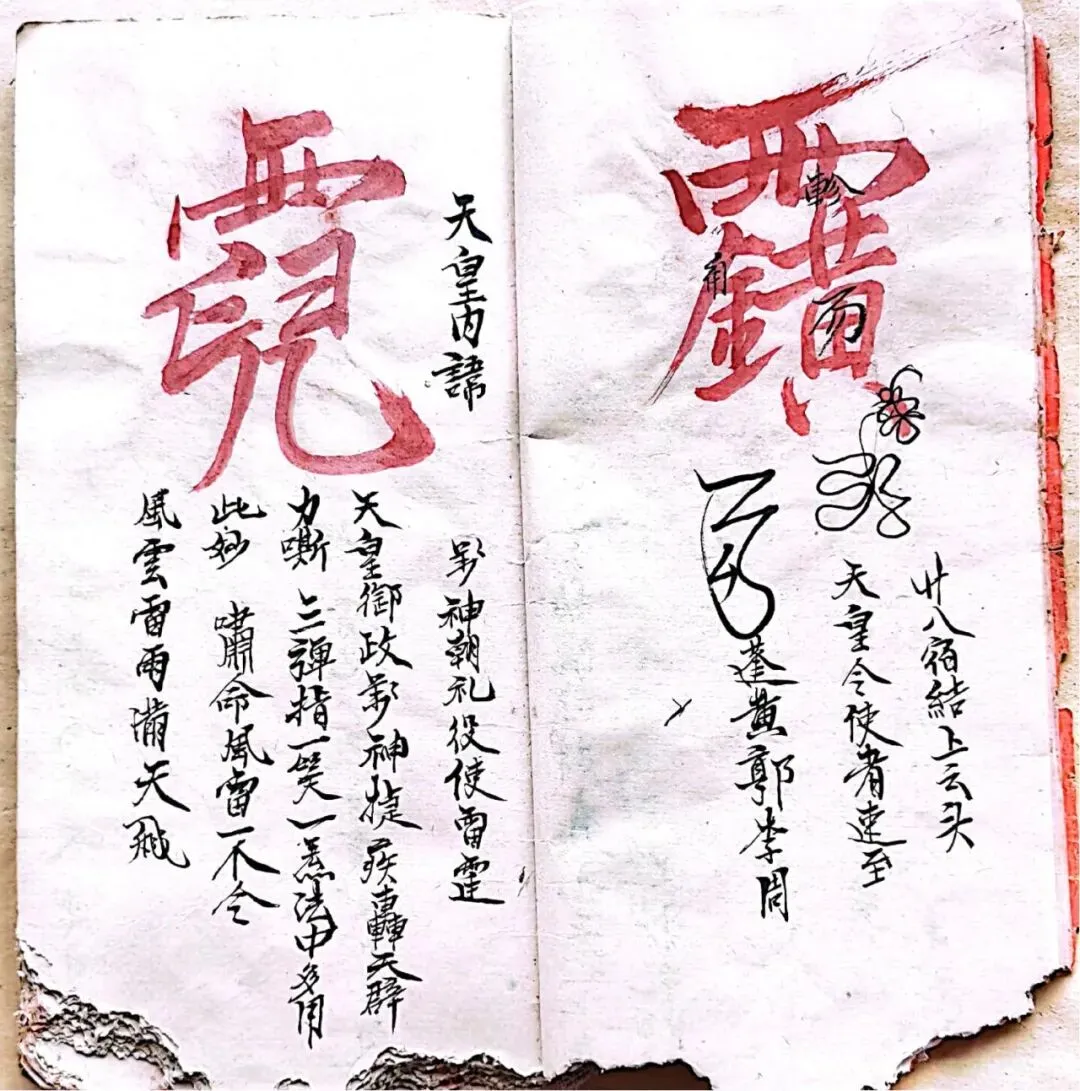 軫
角
廿八宿結上云头
天皇令使者速至
蓬黄郭李周
天皇内諱
神朝礼役使雷霆
天皇御政神捷疾轟天辟
力嘶三弾指一笑一炁法中多用
此妙 嘯命風雷一不令
風雲雷雨满天飛